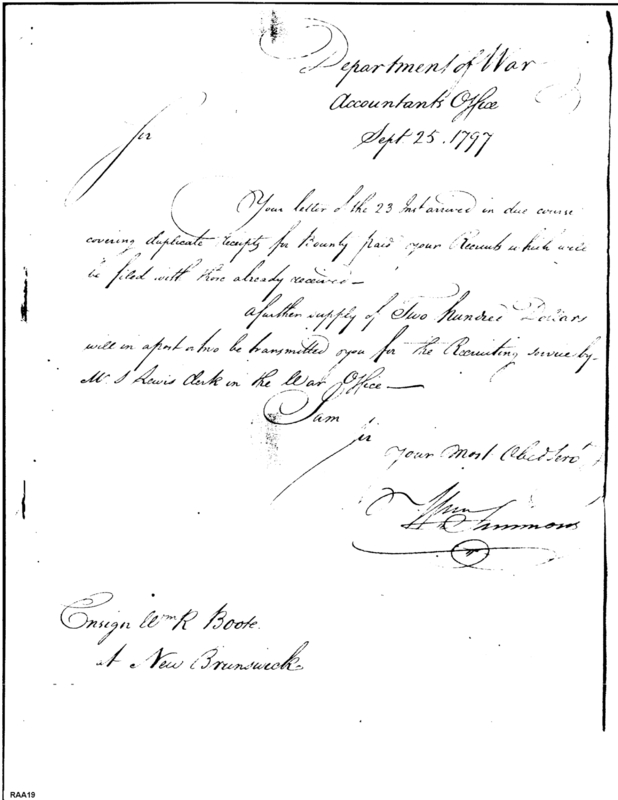 Department of War
Accountants Office
Sept 25. 1797
Sir
Your letter of the 23 Inst arrived in due course
covering duplicate receipts for Bounty paid your Recruits which will
be filed with those already received —
A further supply of Two hundred Dollars
will in a post or two be transmitted you for the Recruiting service by
Mr. S Lewis clerk in the War Office —
I am
Sir
Your Most Obed Servt
Wm Simmons
Ensign Wm R Boote.
at New Brunswick
RAA19